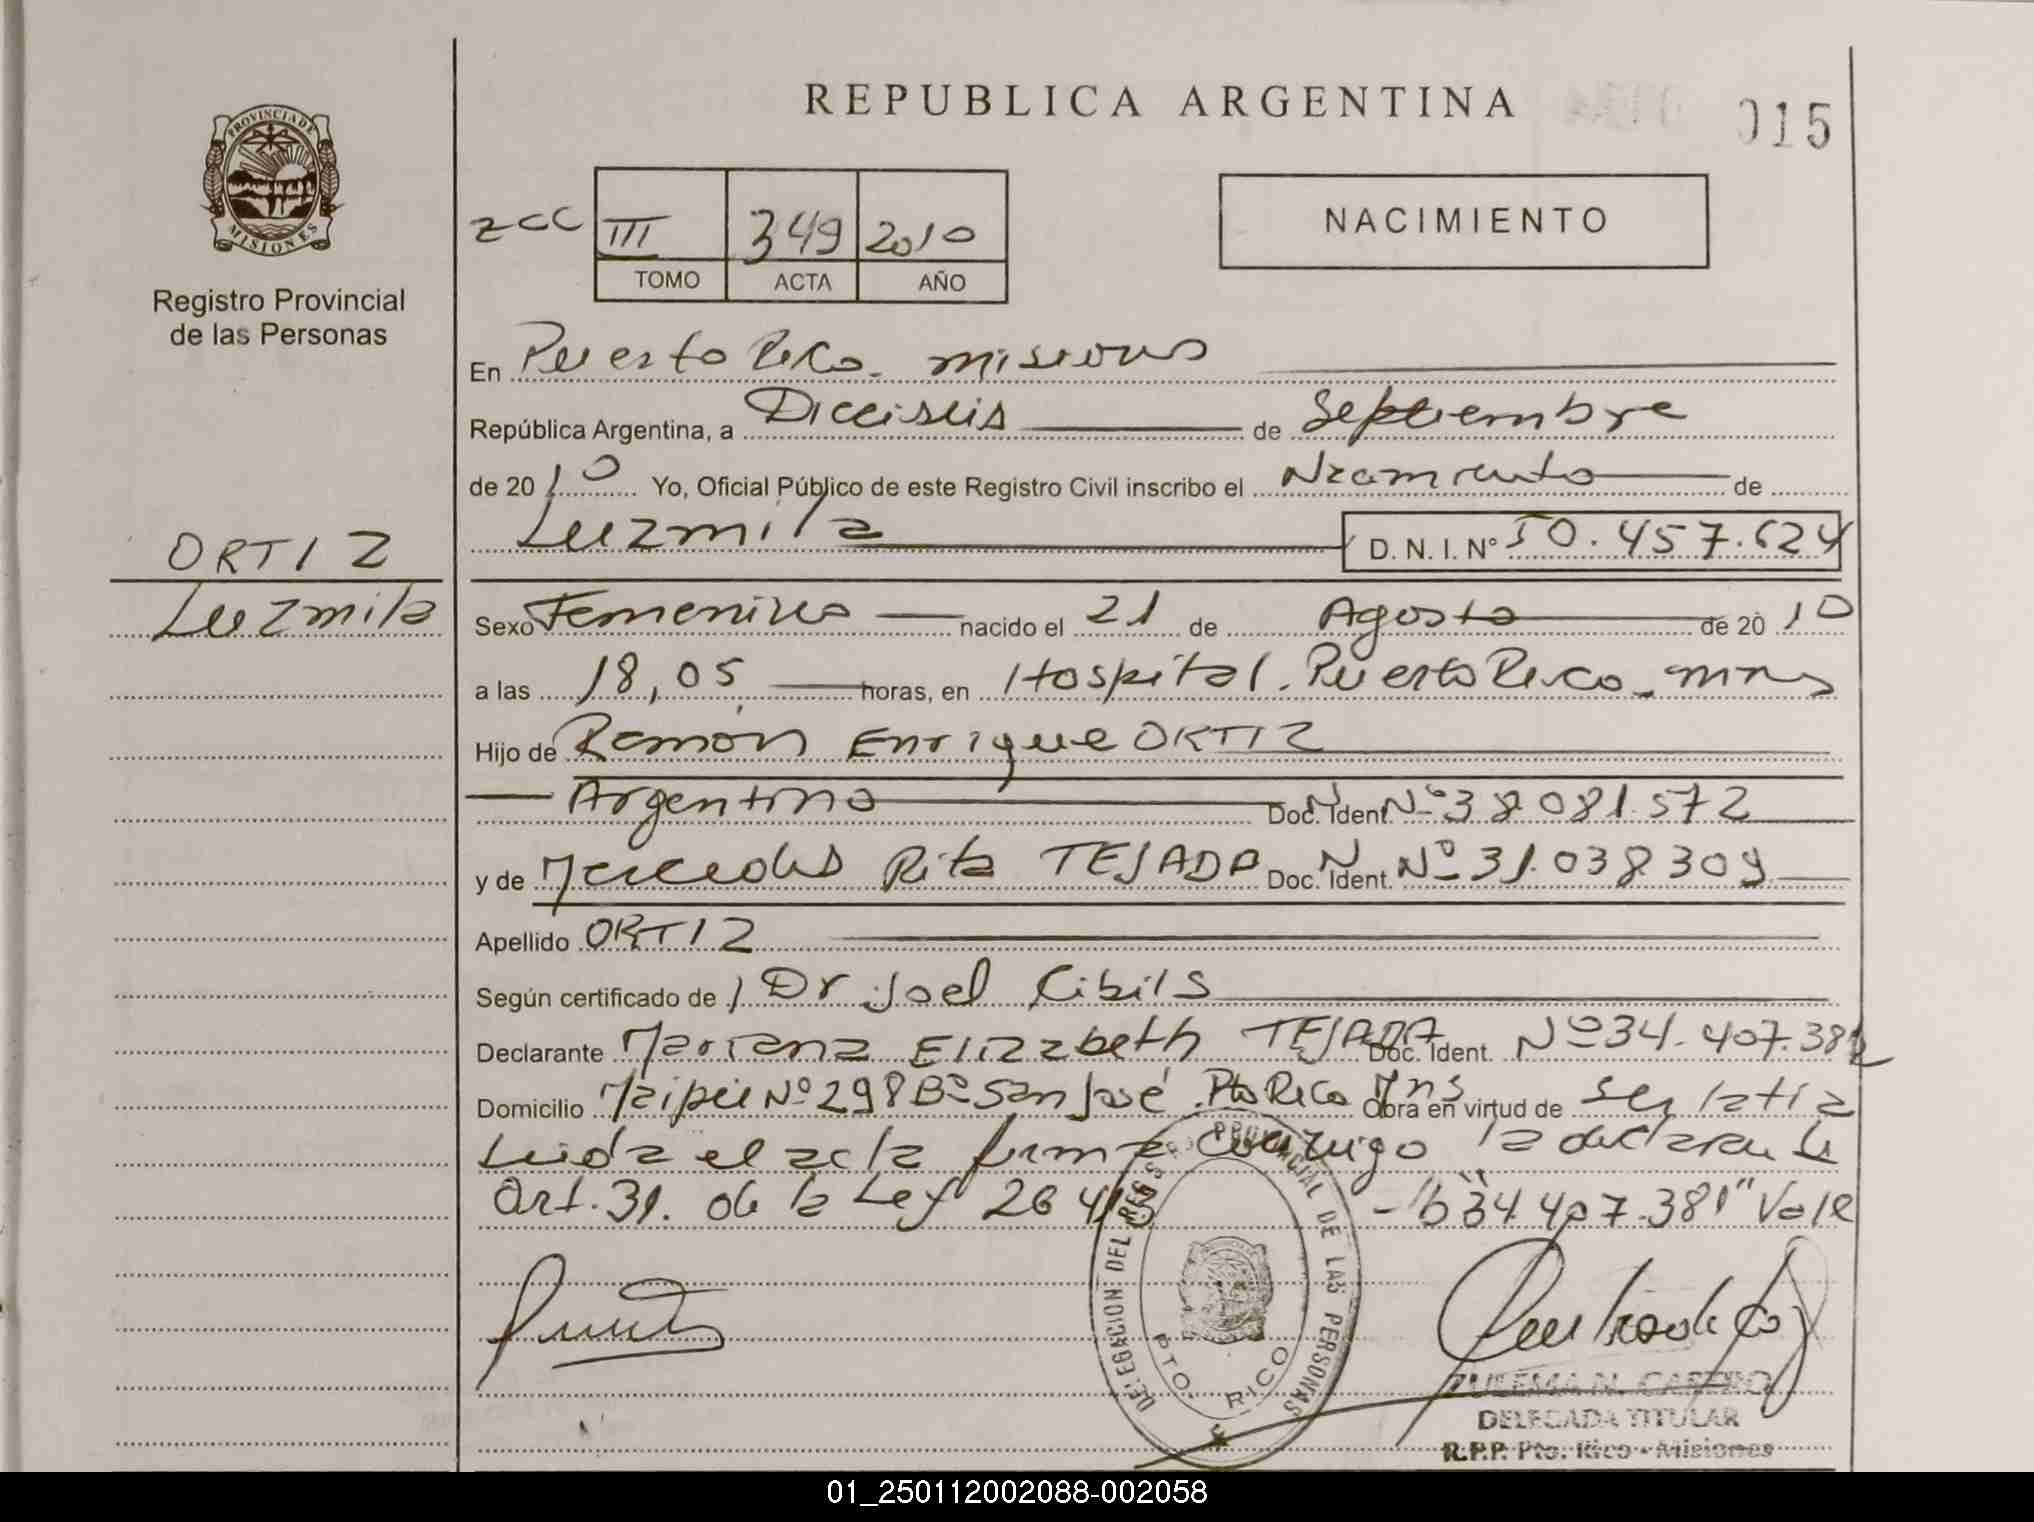 REPUBLICA ARGENTINA
015
PROVINCIA DE MISIONES
Registro Provincial
de las Personas
zcc III 349 2010
TOMO ACTA AÑO
NACIMIENTO
En Puerto Rico. misiones
República Argentina, a Dieciseis de Septiembre
de 2010 Yo, Oficial Público de este Registro Civil inscribo el Nacimiento de
Luzmila D. N. I. Nº 50.457.624
ORTIZ
Luzmila
Sexo Femenino nacido el 21 de Agosto de 2010
a las 18,05 horas, en Hospital. Puerto Rico. mns
Hijo de Ramón Enrique ORTIZ
Argentino Doc. Ident. N Nº 38.081.572
y de Mercedes Rita TEJADA Doc. Ident. N Nº 31.038.309
Apellido ORTIZ
Según certificado de Dr Joel Cibils
Declarante Mariana Elizabeth TEJADA Doc. Ident. Nº 34.407.381
Domicilio Maipú Nº 298 Bº San José. Pto Rico Mns Obra en virtud de ser la tia
Leida el acta firma conmigo la declarante
Art. 31. de la Ley 26413 - "34.407.381" Vale
DELEGACION DEL REGISTRO PROVINCIAL DE LAS PERSONAS
PTO. RICO
ZULEMA N. CABRERO
DELEGADA TITULAR
R.P.P. Pto. Rico - Misiones
01_250112002088-002058